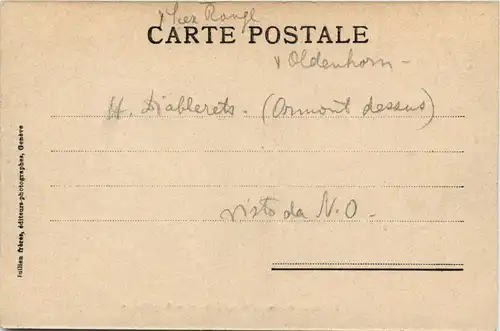 Scex Rougl
CARTE POSTALE
Oldenhorn -
H. Diablerets. (Ormont dessus)
visto da N.O -
Jullien frères, éditeurs-photographes, Genève